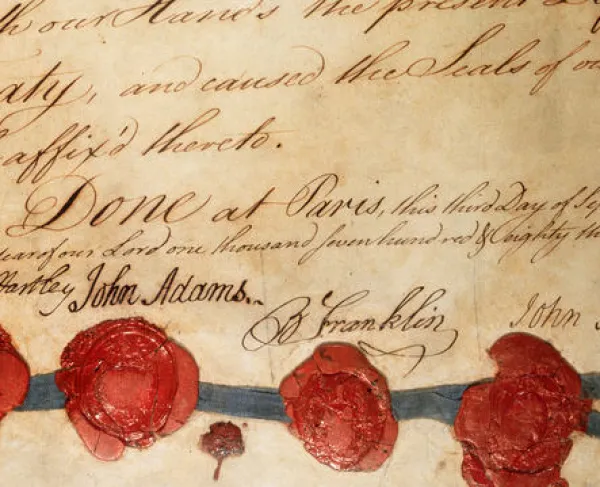 our Hands the present
aty, and caused the Seals of
affix'd thereto.
Done at Paris, this third Day of Sep
year of our Lord one thousand seven hundred & eighty th
Hartley John Adams. B Franklin John